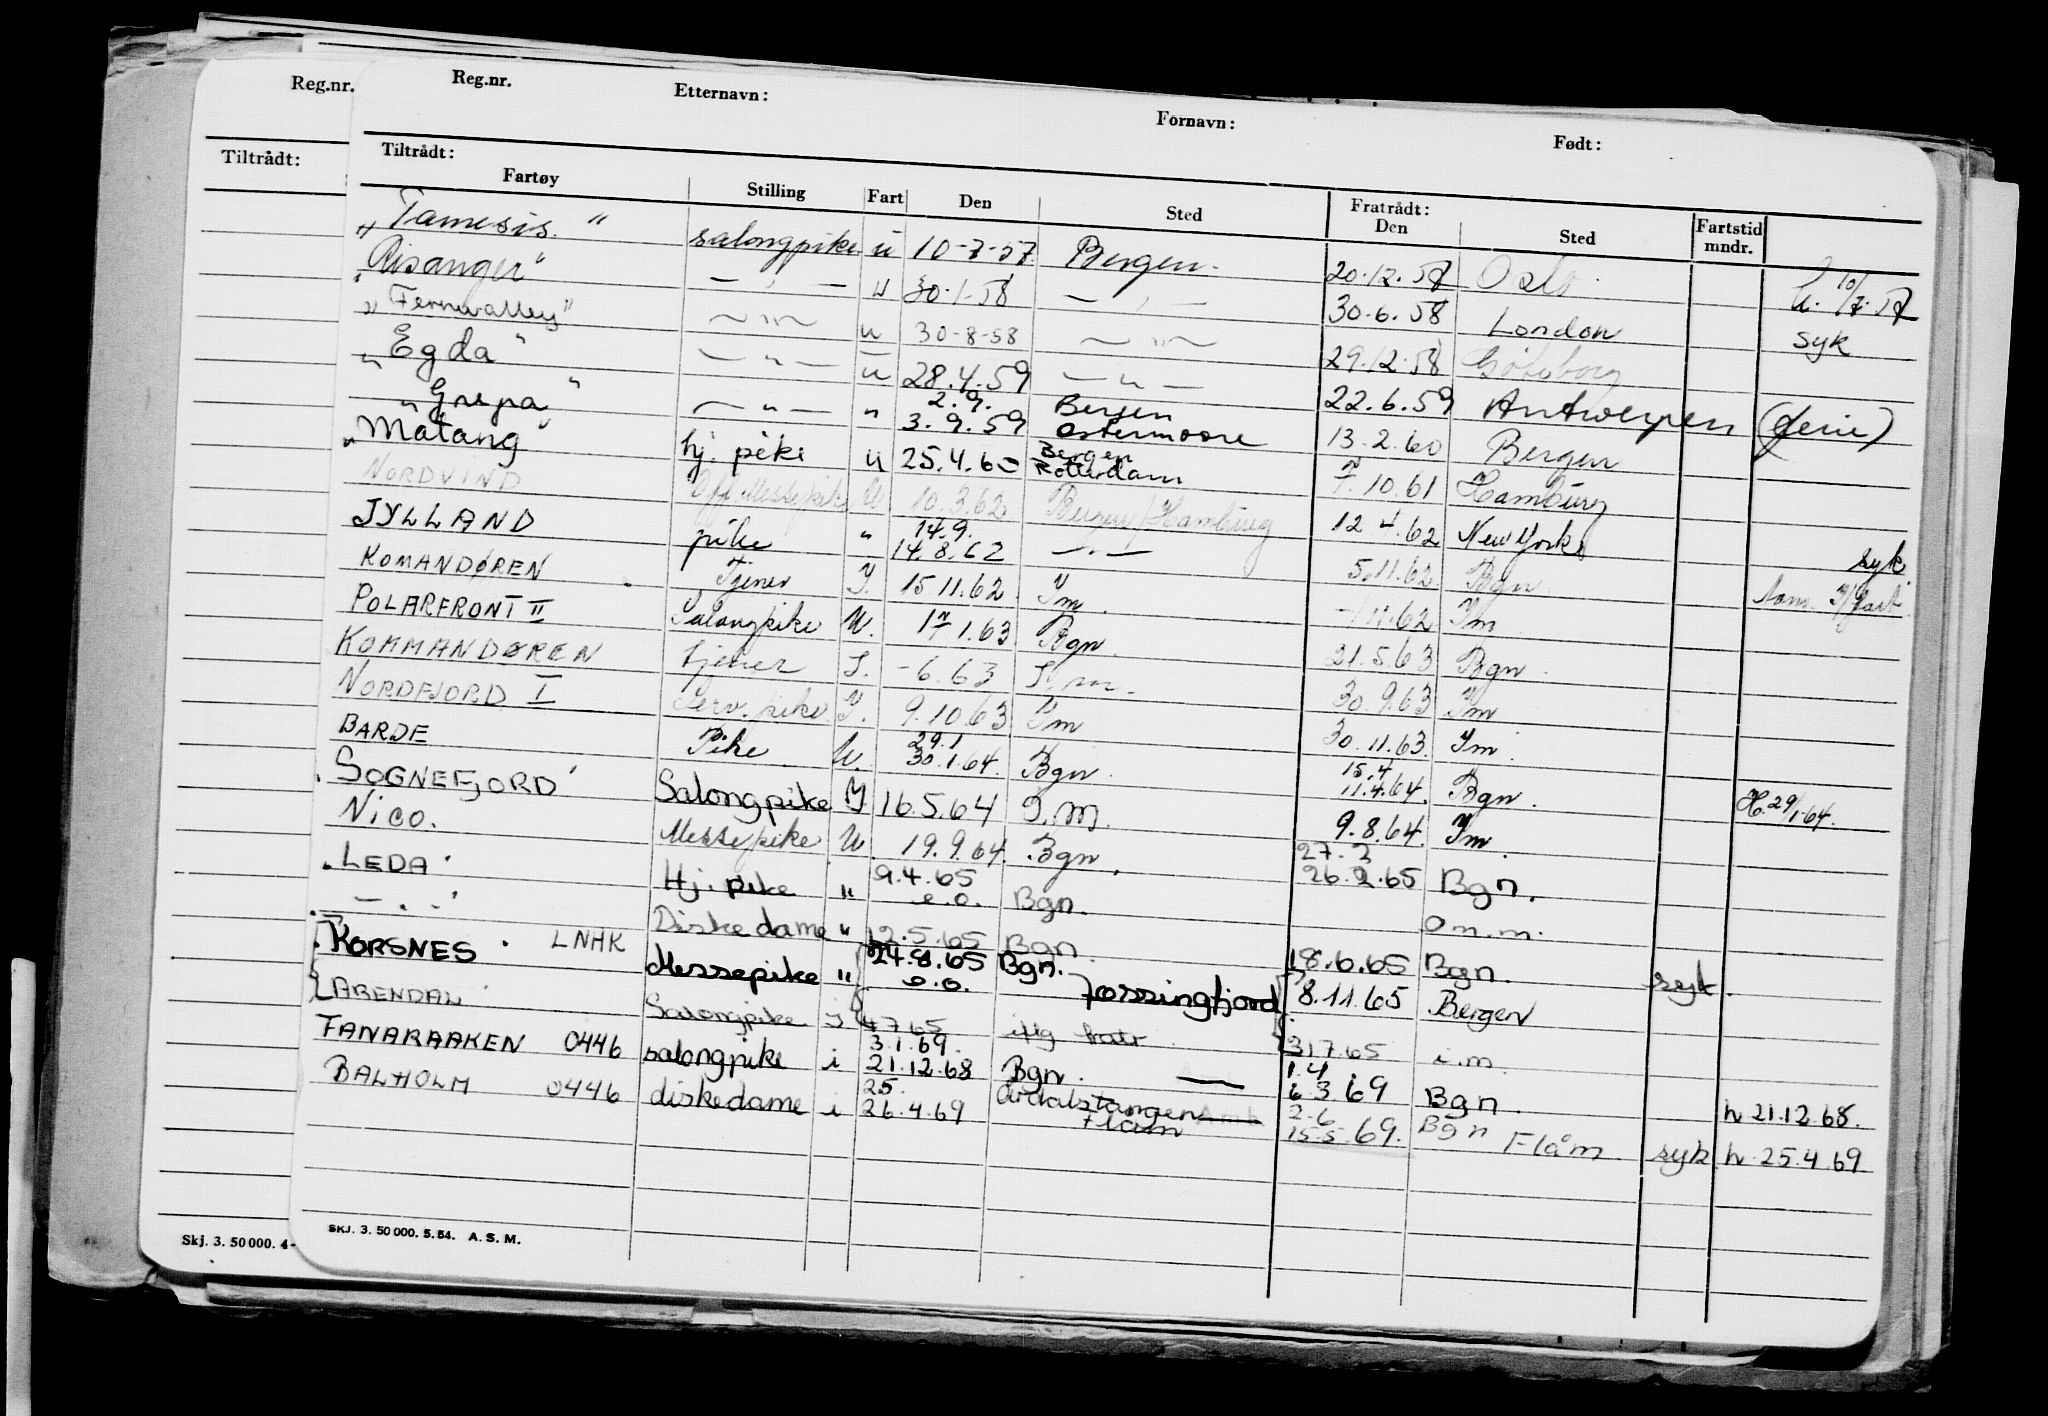 Reg.nr.
Reg.nr. Etternavn: Fornavn: Født:
Tiltrådt:
Tiltrådt: Fratrådt:
Fartøy Stilling Fart Den Sted Den Sted Fartstid mndr.
"Tamesis." salongpike u 10-7-57 Bergen. 20.12.57 Oslo h. 10/7.57
"Risanger" — " — u 30.1.58 — " — 30.6.58 London syk
"Fernvalley" — " — u 30-8-58 — " — 29.12.58 Göteborg
"Egda" — " — u 28.4.59 — " — 22.6.59 Antwerpen (ferie)
2.9. Bergen
"Grepa" — " — " 3.9.59 Ostermoore 13.2.60 Bergen
Bergen
"Matang" hj. pike u 25.4.60 Rotterdam 7.10.61 Hamburg
NORDVIND Off.Messepike U 10.3.62 Bergen/Hamburg 12.4.62 New York syk.
14.9.
JYLLAND pike " 14.8.62 — " — 5.11.62 Bgn.
KOMANDØREN Tjener I. 15.11.62 Im. - 11.62 Im
POLARFRONT II Salongpike U. 17/1.63 Bgn. 21.5.63 Bgn.
KOMMANDØREN tjener I. - 6.63 I.m. 30.9.63 Im
NORDFJORD I Serv.pike I. 9.10.63 Im 30.11.63. Im.
29.1 15.4
BARDE Pike U. 30.1.64. Bgn. 11.4.64. Bgn. H. 29/1-64.
SOGNEFJORD Salongpike I 16.5.64 I.M. 9.8.64. Im.
27.2
NICO. Messepike U 19.9.64. Bgn. 26.2.65 Bgn.
9.4.65
"LEDA" Hj. pike " e.o. Bgn. Om.m.
— " — Diskedame " 12.5.65 Bgn. 18.6.65 Bgn. syk.
24.8.65 Bgn.
"KORSNES" LNHK Messepike " e.o. Jøssingfjord 8.11.65 Bergen
ARENDAL Salongpike I 4.7.65 iflg katr. 31.7.65 i.m.
3.1.69. 1.4
FANARAAKEN 0446 salongpike i 21.12.68 Bgn. — 6.3.69 Bgn. h 21.12.68.
25. Årdalstangen 2.6 Bgn
BALHOLM 0446 diskedame i 26.4.69 Flåm 15.5.69. Flåm syk h 25.4.69
SKJ. 3. 50 000. 5.54. A. S. M.
Skj. 3. 50 000. 4-